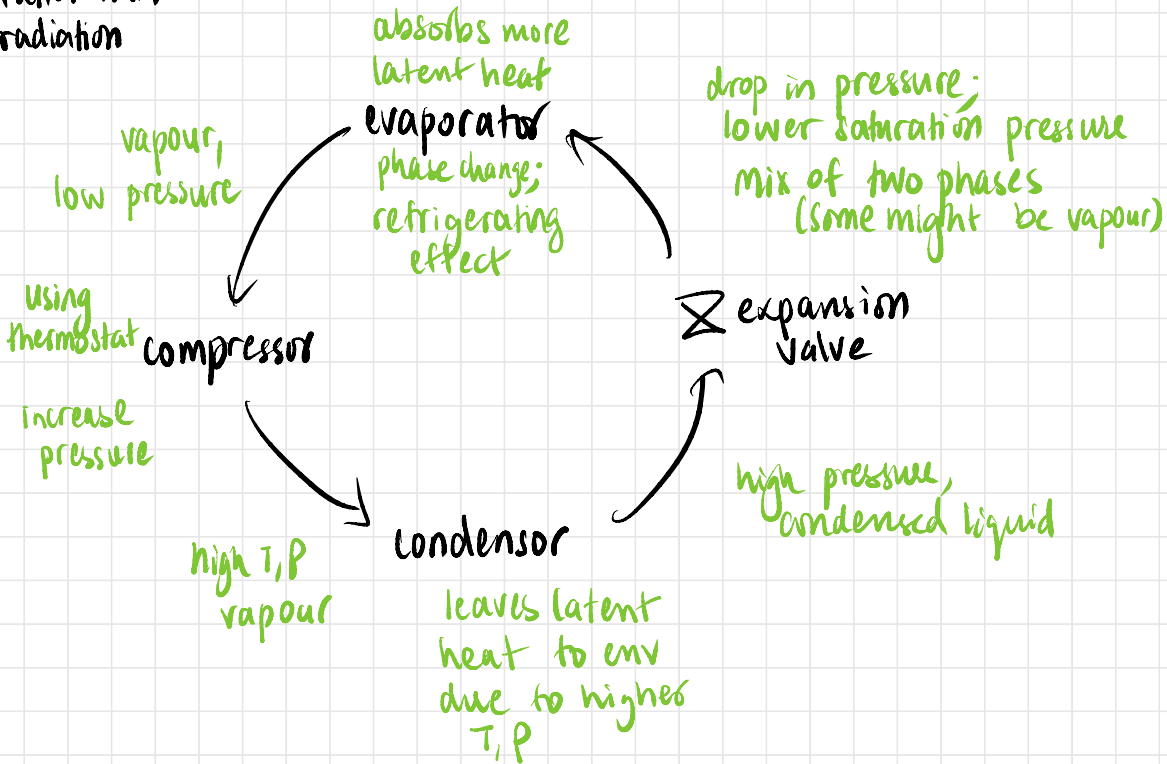 radiation
absorbs more
latent heat
evaporator
phase change;
refrigerating
effect
drop in pressure;
lower saturation pressure
mix of two phases
(some might be vapour)
vapour,
low pressure
using
thermostat
compressor
increase
pressure
expansion
valve
high T, P
vapour
condensor
leaves latent
heat to env
due to higher
T, P
high pressure,
condensed liquid